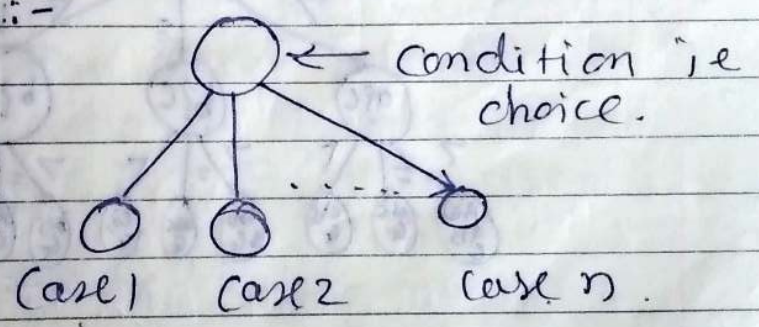 :-
Condition ie
choice.
Case 1 Case 2 ..... Case n.